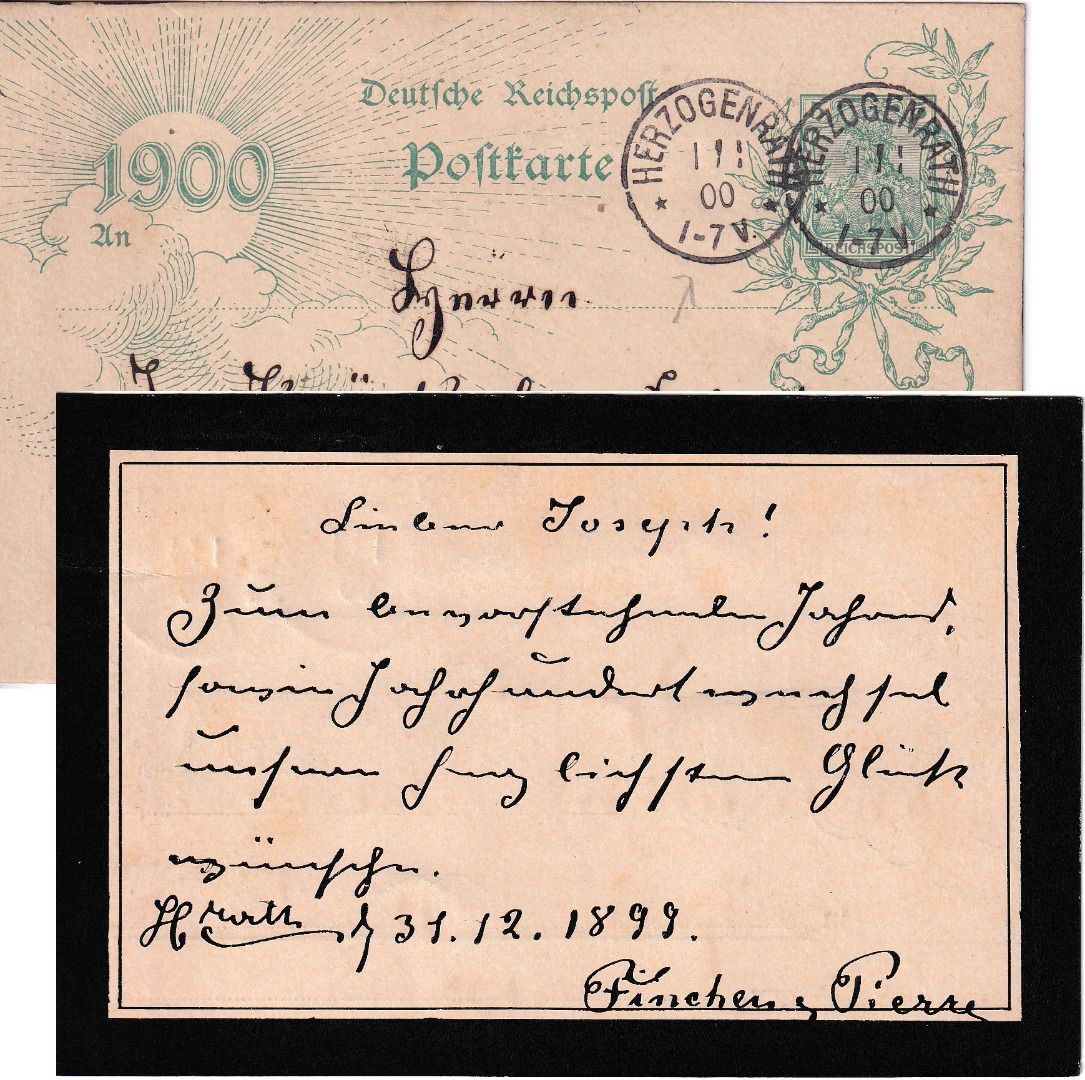 Deutsche Reichspost
Postkarte
1900
An
HERZOGENRATH
1 1
00
1-7 V.
HERZOGENRATH
1 1
00
1-7 V.
REICHSPOST
Herrn
Lieber Joseph!
Zum bevorstehenden Jahres,
sowie Jahrhundertwechsel
unsere herzlichsten Glück
wünsche.
H'rath d 31.12.1899.
Finchen & Pierre